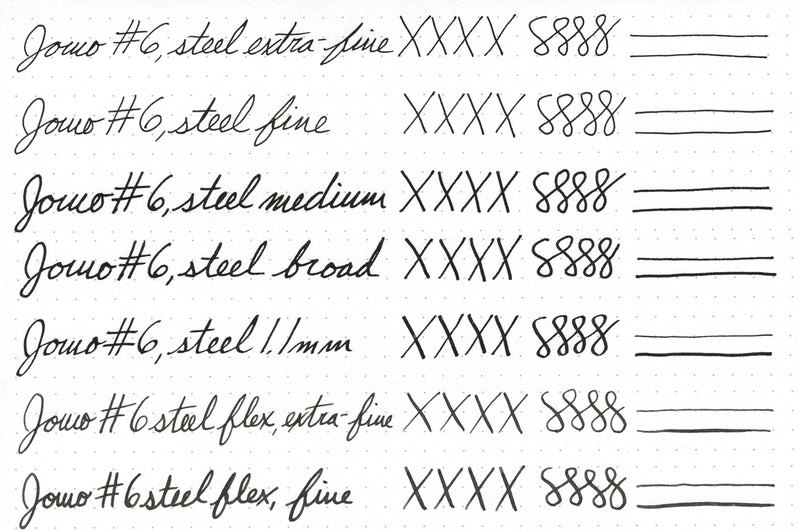 Jowo #6, steel extra-fine XXXX 8888
Jowo #6, steel fine XXXX 8888
Jowo #6, steel medium XXXX 8888
Jowo #6, steel broad XXXX 8888
Jowo #6, steel 1.1mm XXXX 8888
Jowo #6 steel flex, extra-fine XXXX 8888
Jowo #6 steel flex, fine XXXX 8888